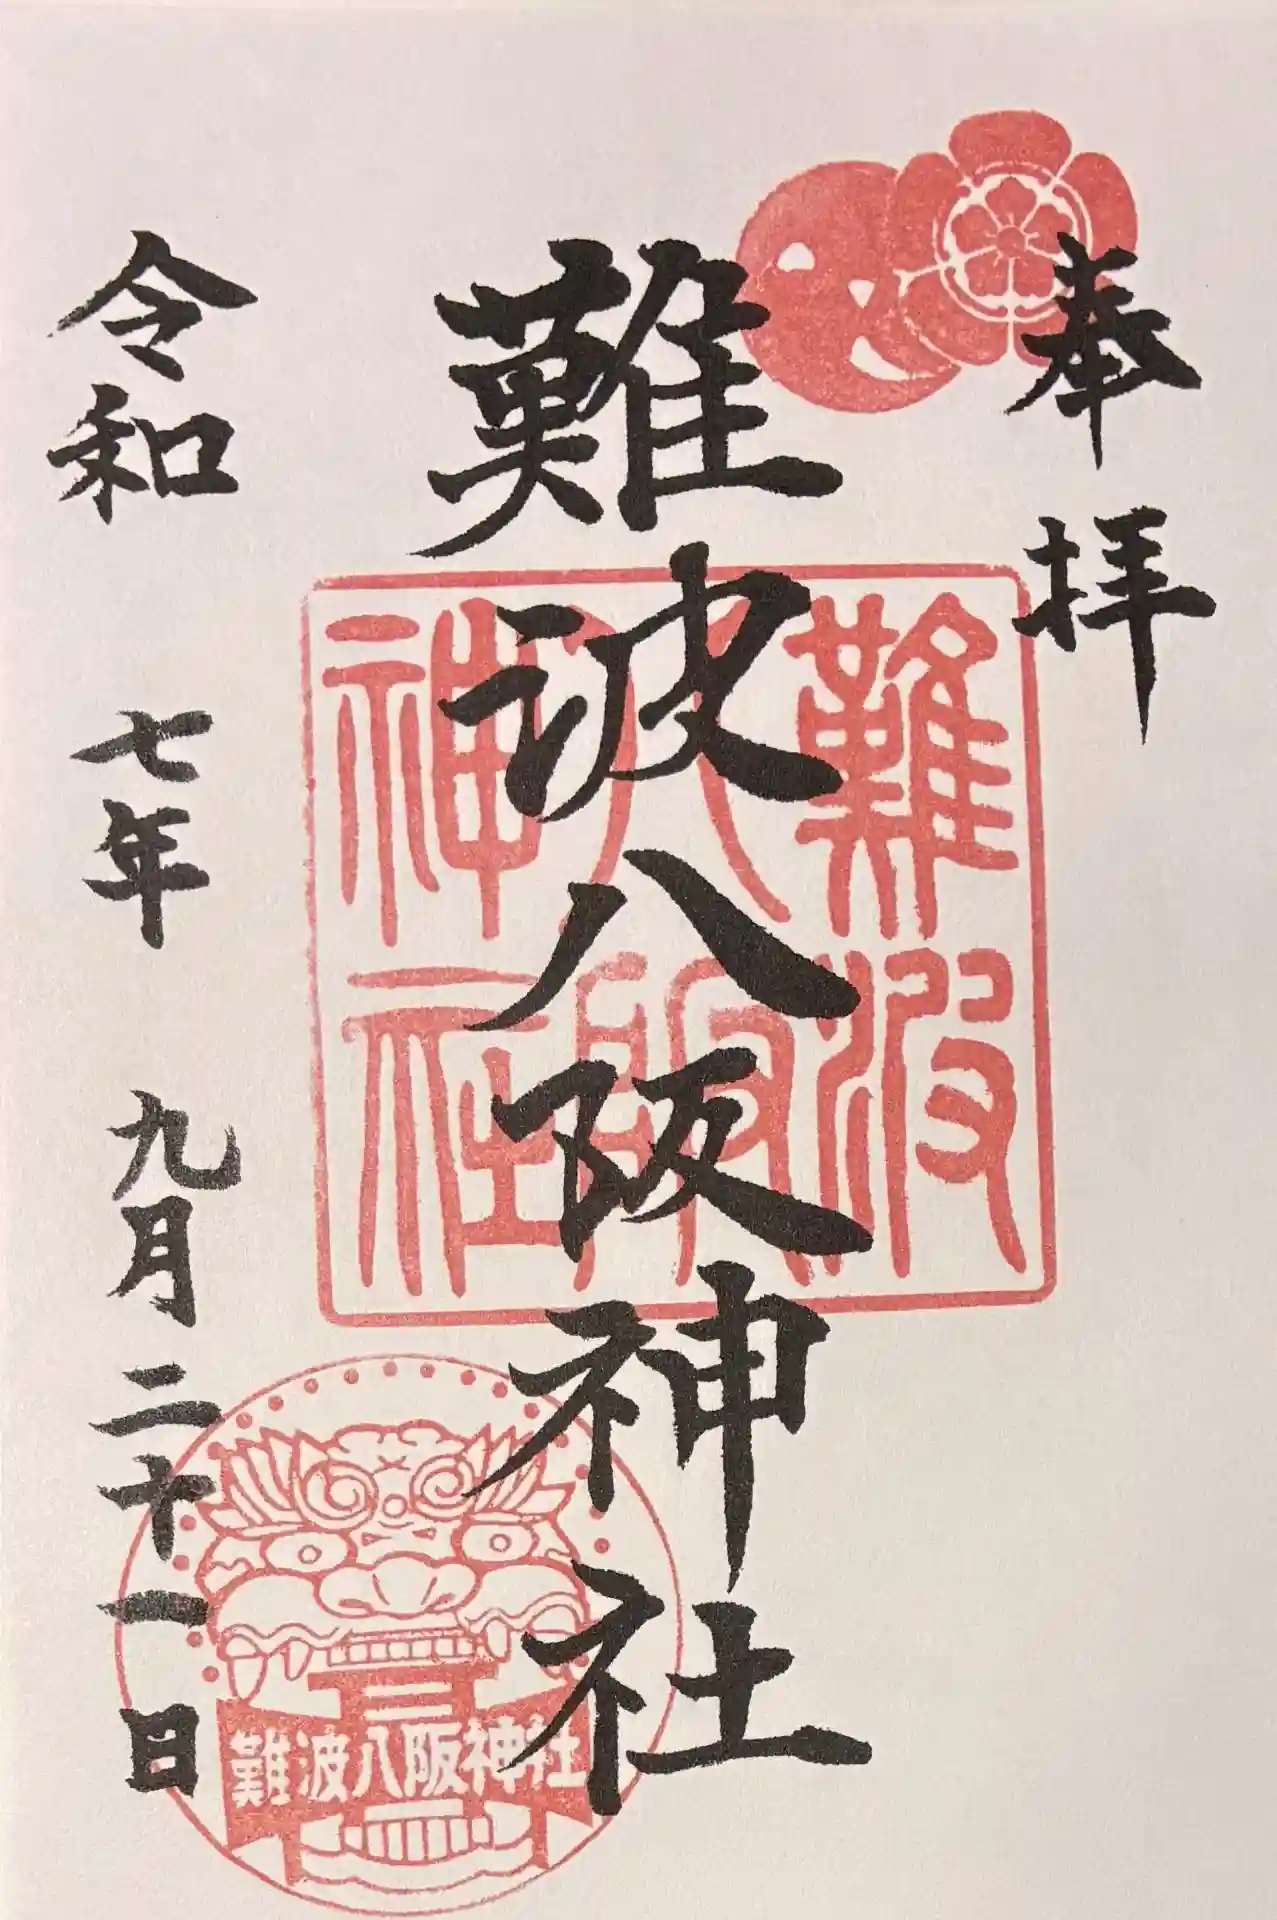 奉拝
難波八阪神社
難波
八阪
神社
難波八阪神社
令和 七年 九月 二十一日